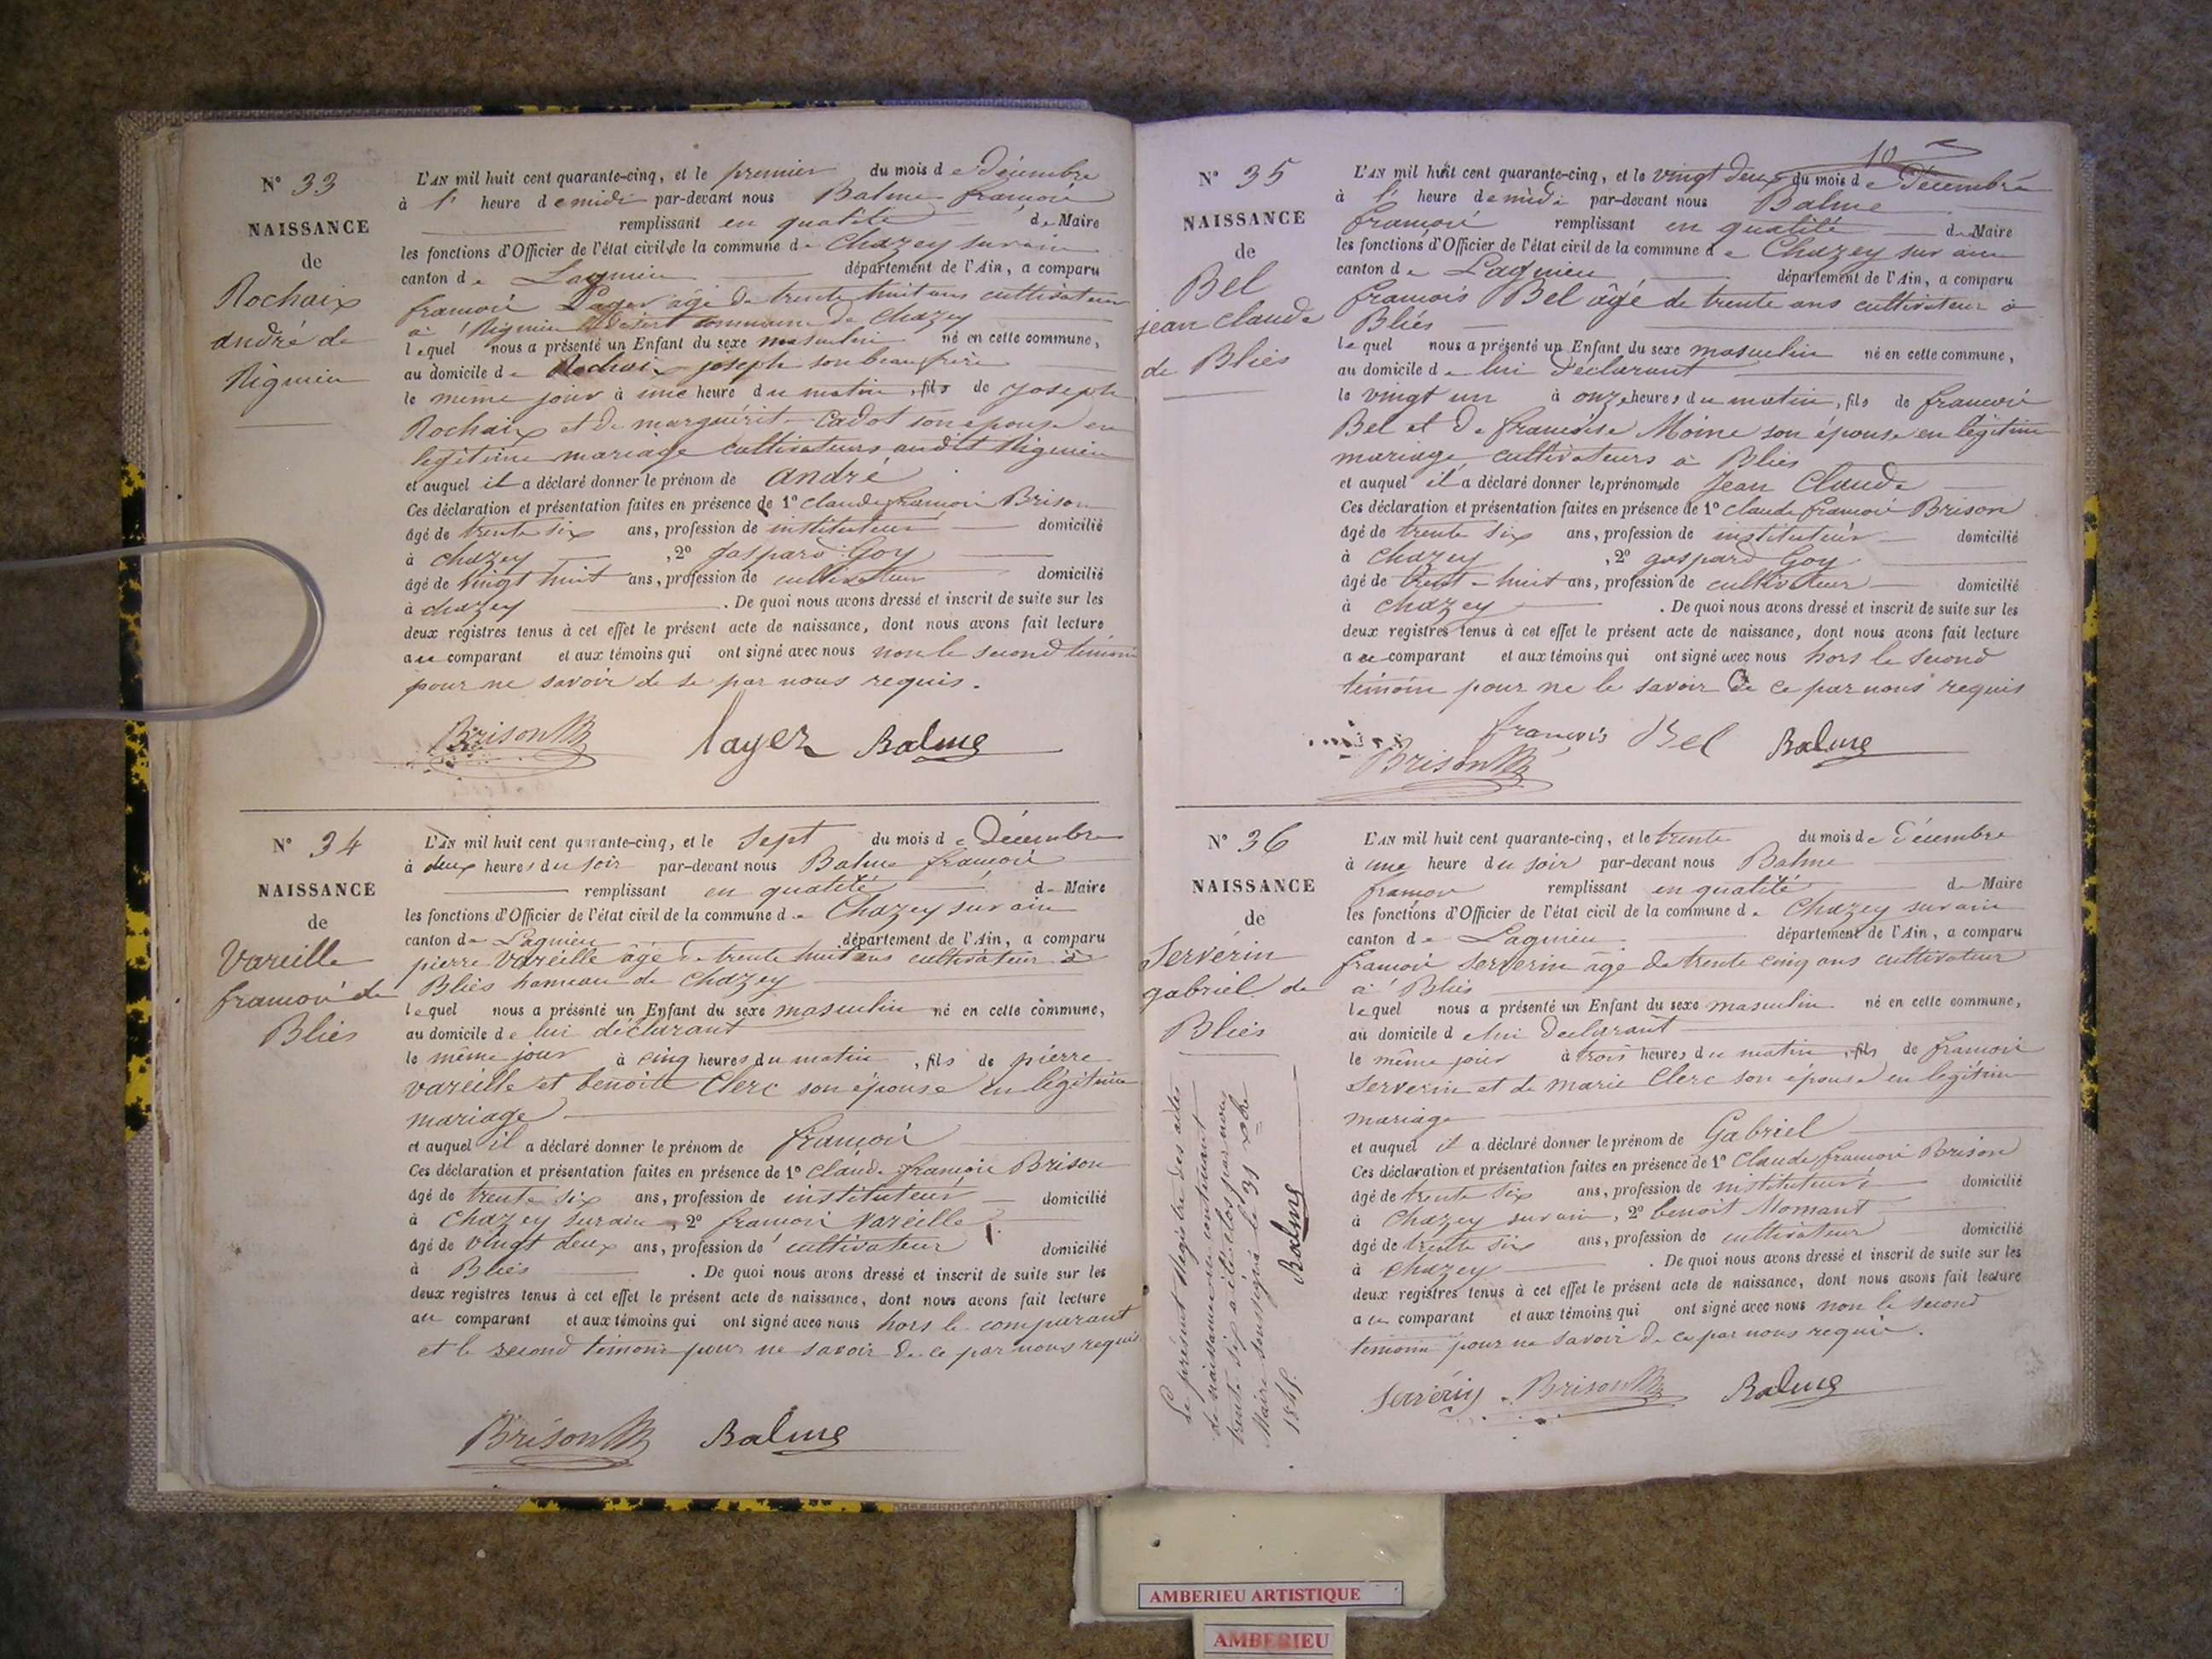 N° 33
NAISSANCE
de
Rochaix
andré de
Rignieu
L'AN mil huit cent quarante-cinq, et le premier du mois de Décembre
à l' heure de midi par-devant nous Balme françois
remplissant en qualité de Maire
les fonctions d'Officier de l'état civil de la commune de Chazey sur ain
canton de Lagnieu département de l'Ain, a comparu
françois Layer âgé de trente huit ans cultivateur
à Rignieu le désert commune de Chazey
lequel nous a présenté un Enfant du sexe masculin né en cette commune,
au domicile de Rochaix joseph son beau frère
le même jour à une heure du matin, fils de joseph
Rochaix et de marguerit Cadot son épouse en
legitime mariage cultivateurs audit Rignieu
et auquel il a déclaré donner le prénom de andré
Ces déclaration et présentation faites en présence de 1° Claude françois Brison
âgé de trente six ans, profession de instituteur domicilié
à chazey , 2° gaspard Goy
âgé de vingt huit ans, profession de cultivateur domicilié
à chazey . De quoi nous avons dressé et inscrit de suite sur les
deux registres tenus à cet effet le présent acte de naissance, dont nous avons fait lecture
au comparant et aux témoins qui ont signé avec nous non le second témoin
pour ne savoir de ce par nous requis.
Brison layer Balme
N° 34
NAISSANCE
de
Vareille
françois de
Bliès
L'AN mil huit cent quarante-cinq, et le sept du mois de Décembre
à deux heures du soir par-devant nous Balme françois
remplissant en qualité de Maire
les fonctions d'Officier de l'état civil de la commune de Chazey sur ain
canton de Lagnieu département de l'Ain, a comparu
pierre Vareille âgé de trente huit ans cultivateur à
Bliès hameau de Chazey
lequel nous a présenté un Enfant du sexe masculin né en cette commune,
au domicile de lui déclarant
le même jour à cinq heures du matin, fils de pierre
vareille et benoite Clerc son épouse en légitime
mariage
et auquel il a déclaré donner le prénom de françois
Ces déclaration et présentation faites en présence de 1° Claude françois Brison
âgé de trente six ans, profession de instituteur domicilié
à Chazey sur ain, 2° françois Vareille
âgé de vingt deux ans, profession de cultivateur domicilié
à Bliès . De quoi nous avons dressé et inscrit de suite sur les
deux registres tenus à cet effet le présent acte de naissance, dont nous avons fait lecture
au comparant et aux témoins qui ont signé avec nous hors le comparant
et le second témoin pour ne savoir de ce par nous requis
Brison Balme
10
N° 35
NAISSANCE
de
Bel
jean claude
de Bliès
L'AN mil huit cent quarante-cinq, et le vingt deux du mois de Décembre
à l' heure de midi par-devant nous Balme
françois remplissant en qualité de Maire
les fonctions d'Officier de l'état civil de la commune de Chazey sur ain
canton de Lagnieu département de l'Ain, a comparu
françois Bel âgé de trente ans cultivateur à
Bliès
lequel nous a présenté un Enfant du sexe masculin né en cette commune,
au domicile de lui déclarant
le vingt un à onze heures du matin, fils de françois
Bel et de françoise Moine son épouse en légitime
mariage cultivateurs à Bliès
et auquel il a déclaré donner les prénoms de Jean Claude
Ces déclaration et présentation faites en présence de 1° Claude françois Brison
âgé de trente six ans, profession de instituteur domicilié
à Chazey , 2° gaspard Goy
âgé de trent-huit ans, profession de cultivateur domicilié
à Chazey . De quoi nous avons dressé et inscrit de suite sur les
deux registres tenus à cet effet le présent acte de naissance, dont nous avons fait lecture
au comparant et aux témoins qui ont signé avec nous hors le second
témoin pour ne le savoir de ce par nous requis
françois Bel Balme
Brison
N° 36
NAISSANCE
de
Servérin
gabriel de
Bliès
L'AN mil huit cent quarante-cinq, et le trente du mois de Décembre
à une heure du soir par-devant nous Balme
françois remplissant en qualité de Maire
les fonctions d'Officier de l'état civil de la commune de Chazey sur ain
canton de Lagnieu département de l'Ain, a comparu
françois Serverin âgé de trente cinq ans cultivateur
à Bliès
lequel nous a présenté un Enfant du sexe masculin né en cette commune,
au domicile de lui déclarant
le même jour à trois heures du matin, fils de françois
Serverin et de marie Clerc son épouse en legitime
mariage
et auquel il a déclaré donner le prénom de Gabriel
Ces déclaration et présentation faites en présence de 1° Claude françois Brison
âgé de trente six ans, profession de instituteur domicilié
à Chazey sur ain, 2° benoit Momant
âgé de trente six ans, profession de cultivateur domicilié
à Chazey . De quoi nous avons dressé et inscrit de suite sur les
deux registres tenus à cet effet le présent acte de naissance, dont nous avons fait lecture
au comparant et aux témoins qui ont signé avec nous non le second
témoin pour ne savoir de ce par nous requis.
Servérin Brison Balme
Le présent Registre des actes
de naissance contenant
trente six a été clos par nous
Maire soussigné le 31 Xbre
1845. Balme
AMBERIEU ARTISTIQUE
AMBERIEU